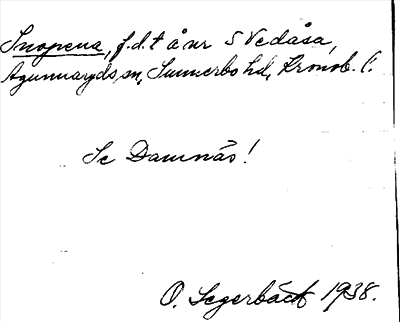 Snopena, f.d. t å nr S Vedåsa,
Agunnaryds sn, Sunnerbo hd, Kronob. l.
Se Damnäs!
O. Segerbäck 1938.